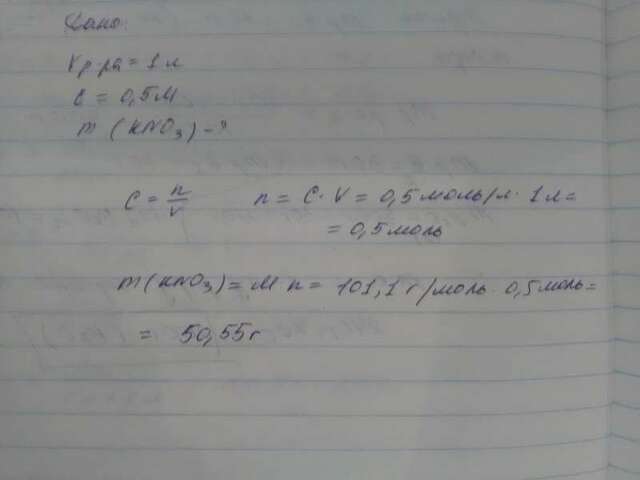 Дано:
Vр-ра = 1 л
C = 0,5 М
m (KNO₃) - ?
C = n/V n = C · V = 0,5 моль/л · 1 л =
= 0,5 моль
m(KNO₃) = M n = 101,1 г/моль · 0,5 моль =
= 50,55 г